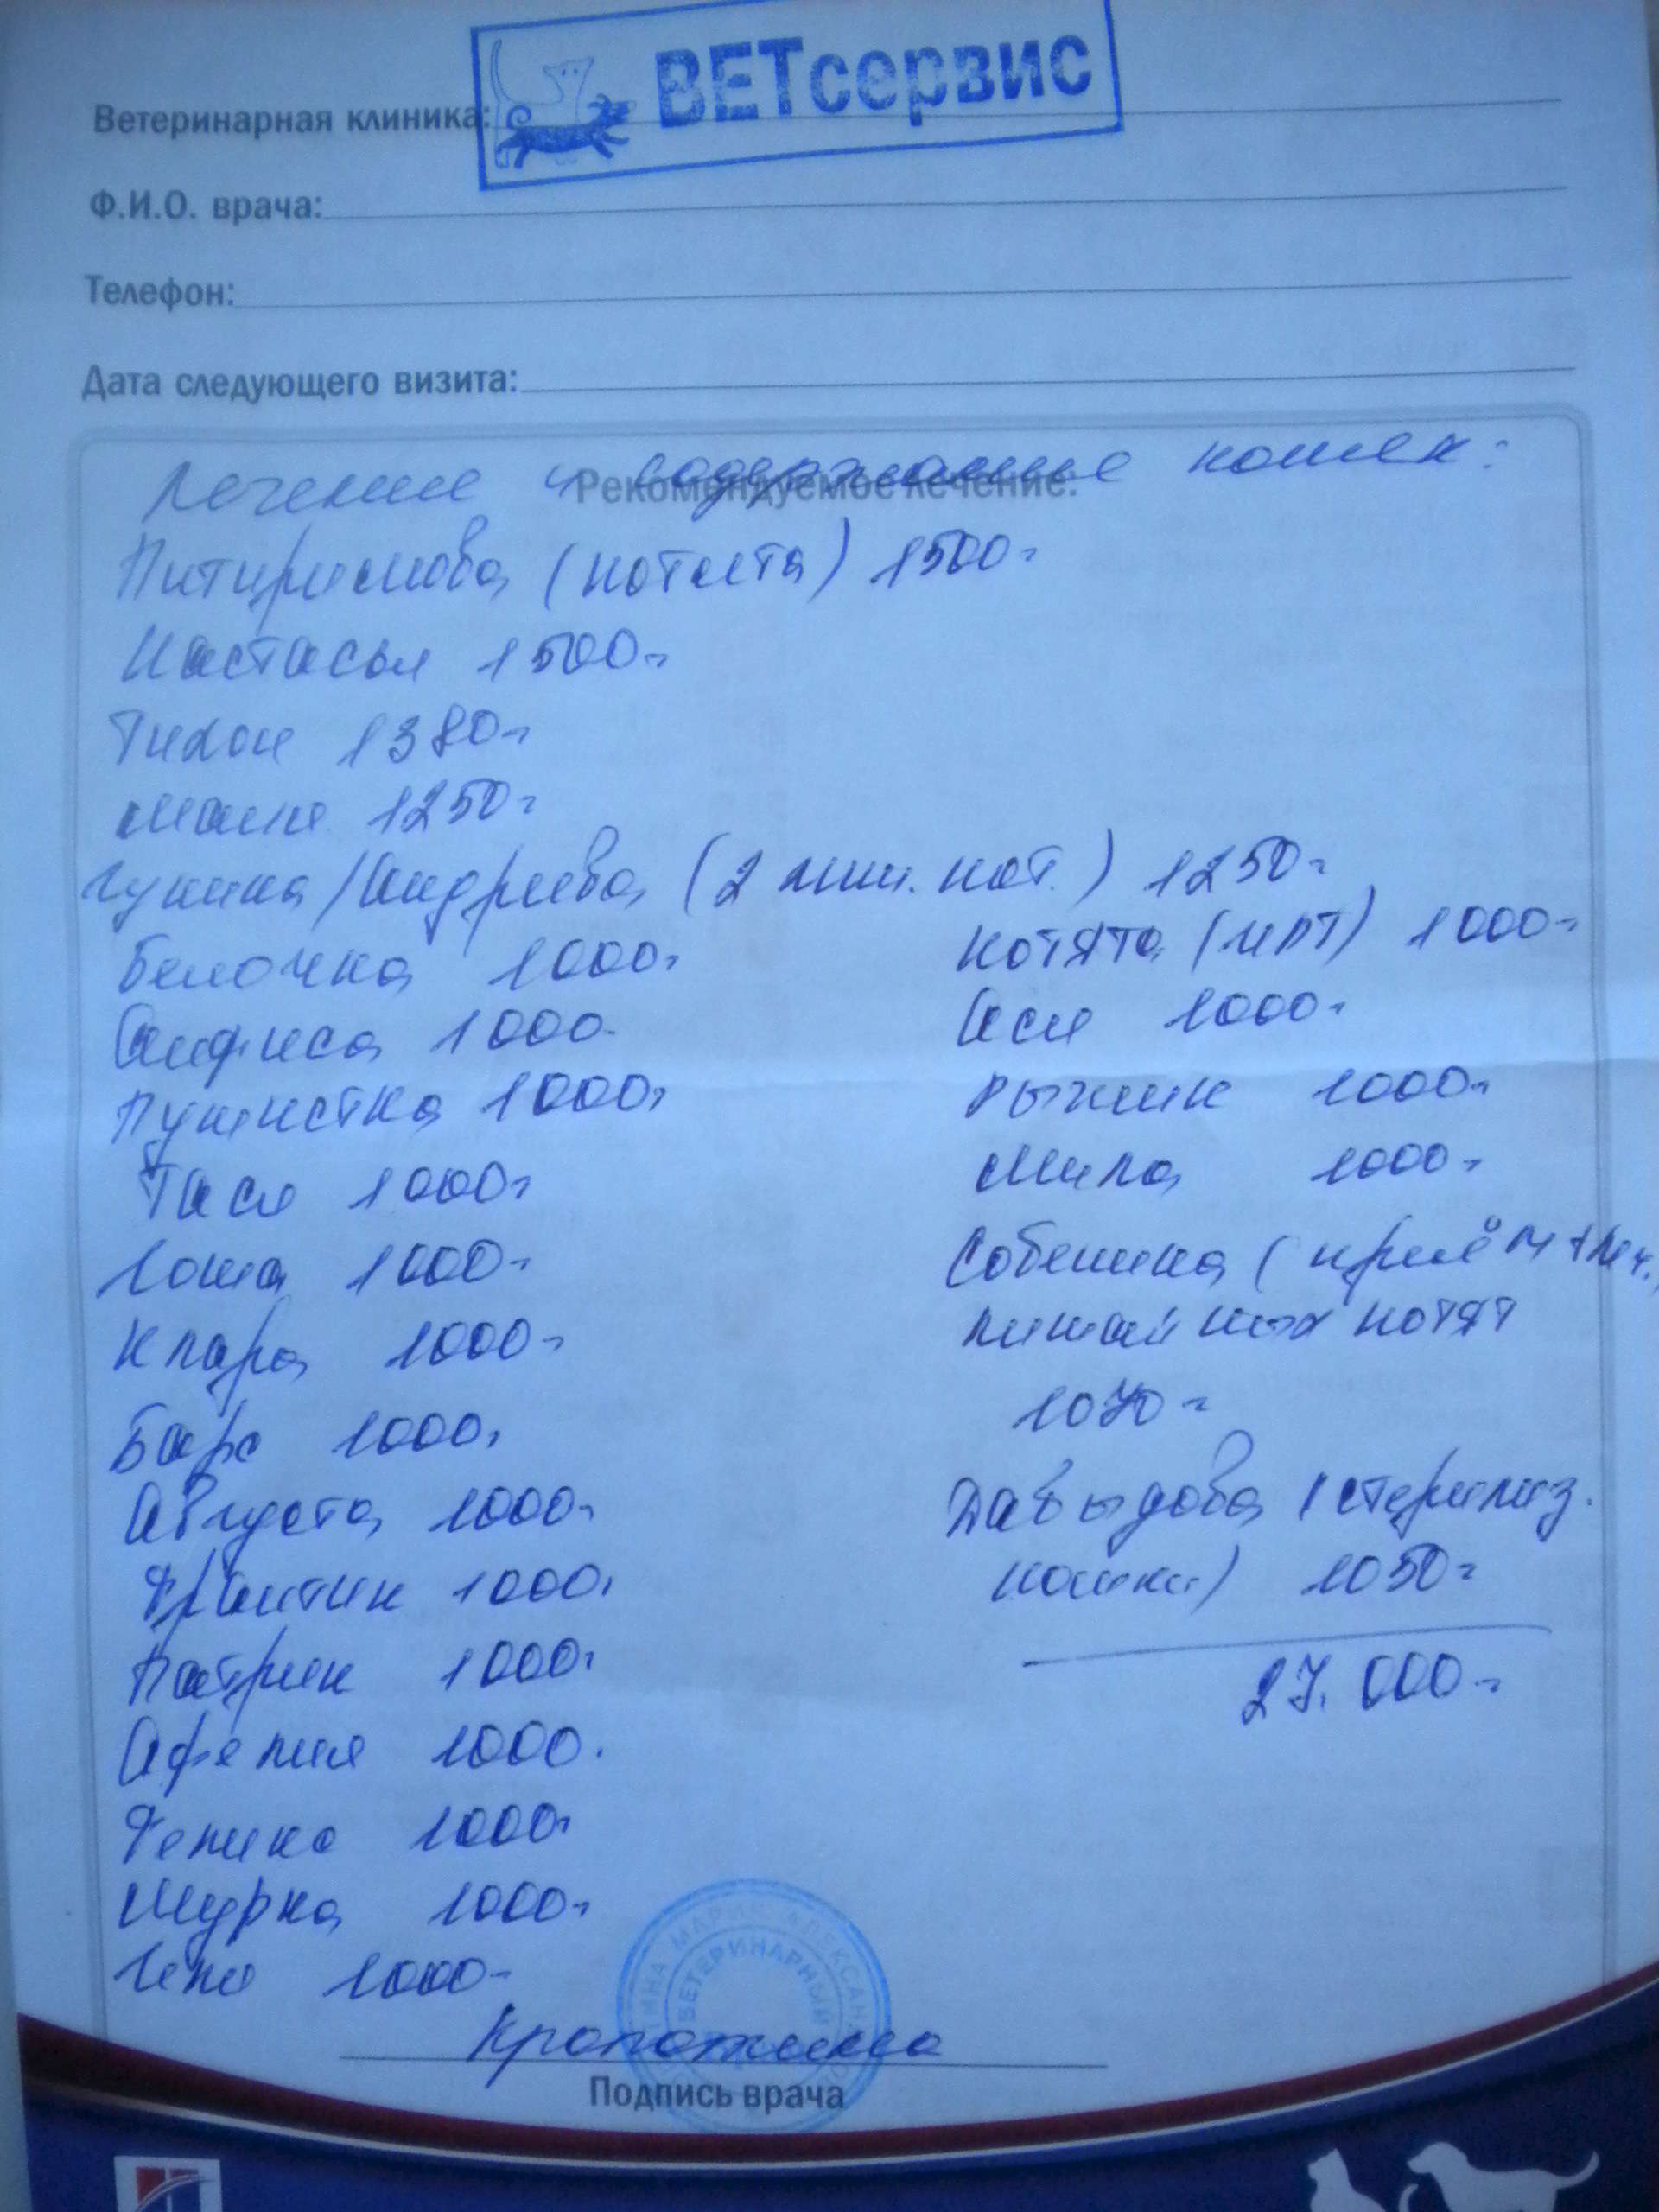 ВЕТсервис
Ветеринарная клиника:
Ф.И.О. врача:
Телефон:
Дата следующего визита:
Рекомендуемое лечение:
Лечение и содержание кошек:
Питиримова (котята) 1500-
Настасья 1500-
Тихон 1380-
Маня 1250-
Гунина/Андреева (2 лиш. кот.) 1250-
Белочка 1000-
Анфиса 1000-
Пушистка 1000-
Тася 1000-
Гоша 1000-
Клара 1000-
Барс 1000-
Августа 1000-
Франтик 1000-
Патрик 1000-
Афелия 1000-
Феликс 1000-
Шурка 1000-
1000-
Котята (ИПТ) 1000-
Ася 1000-
Рыжик 1000-
Мила 1000-
Собенина (приём + леч.
лишайных котят
1070-
Давыдова (стерилиз.
кошки) 1050-
27.000-
Кропоткина
МАРИЯ АЛЕКСАН
ВЕТЕРИНАРНЫЙ
Подпись врача